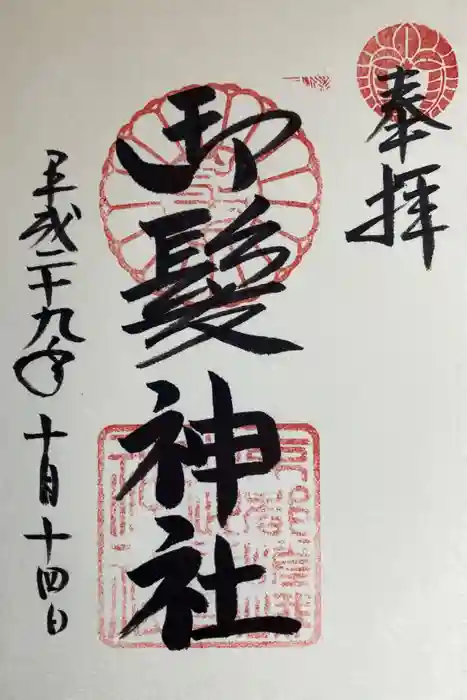 奉拝
御髪神社
平成二十九年十月十四日